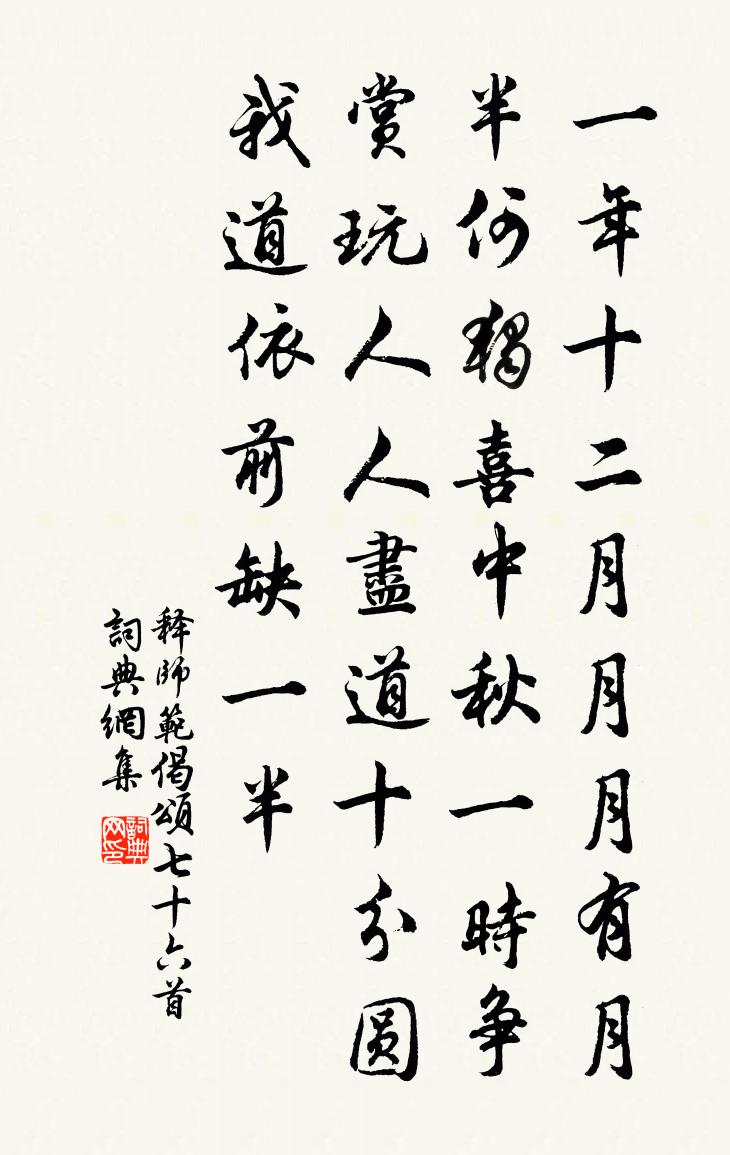 一年十二月月月有月
半何獨喜中秋一時爭
賞玩人人盡道十分圓
我道依前缺一半
释師範偈頌七十六首
詞典網集
詞典网印